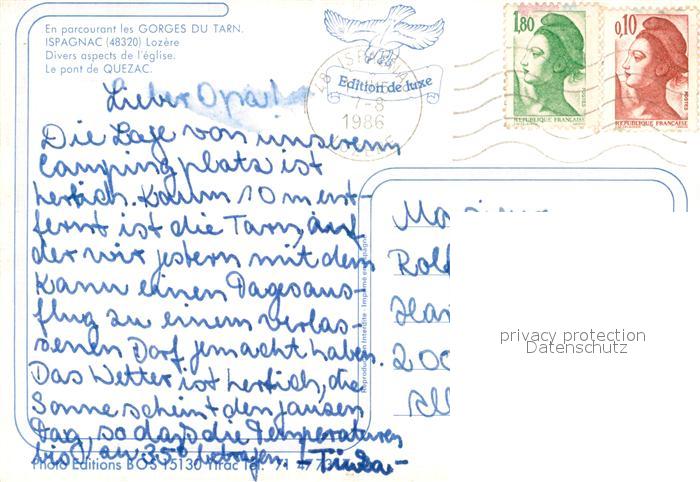 En parcourant les GORGES DU TARN.
ISPAGNAC (48320) Lozère
Divers aspects de l'église.
Le pont de QUEZAC.
Edition de luxe
7-8
1986
1,80
0,10
POSTES
POSTES
REPUBLIQUE FRANÇAISE
REPUBLIQUE FRANÇAISE
Lieber Opa!
Die Lage von unserem
Campingplatz ist
herrlich. Kaum 10 m ent-
fernt ist die Tarn, auf
der wir gestern mit dem
Kanu einen Tagesaus-
flug zu einem verlas-
senen Dorf gemacht haben.
Das Wetter ist herrlich, die
Sonne scheint den ganzen
Tag, so dass die Temperaturen
bis an 35° betragen.
Reproduction Interdite - Imprimé en Espagne
Rolf
200
privacy protection
Datenschutz
Photo Editions BOS 15130 Ytrac Tel. 71 47